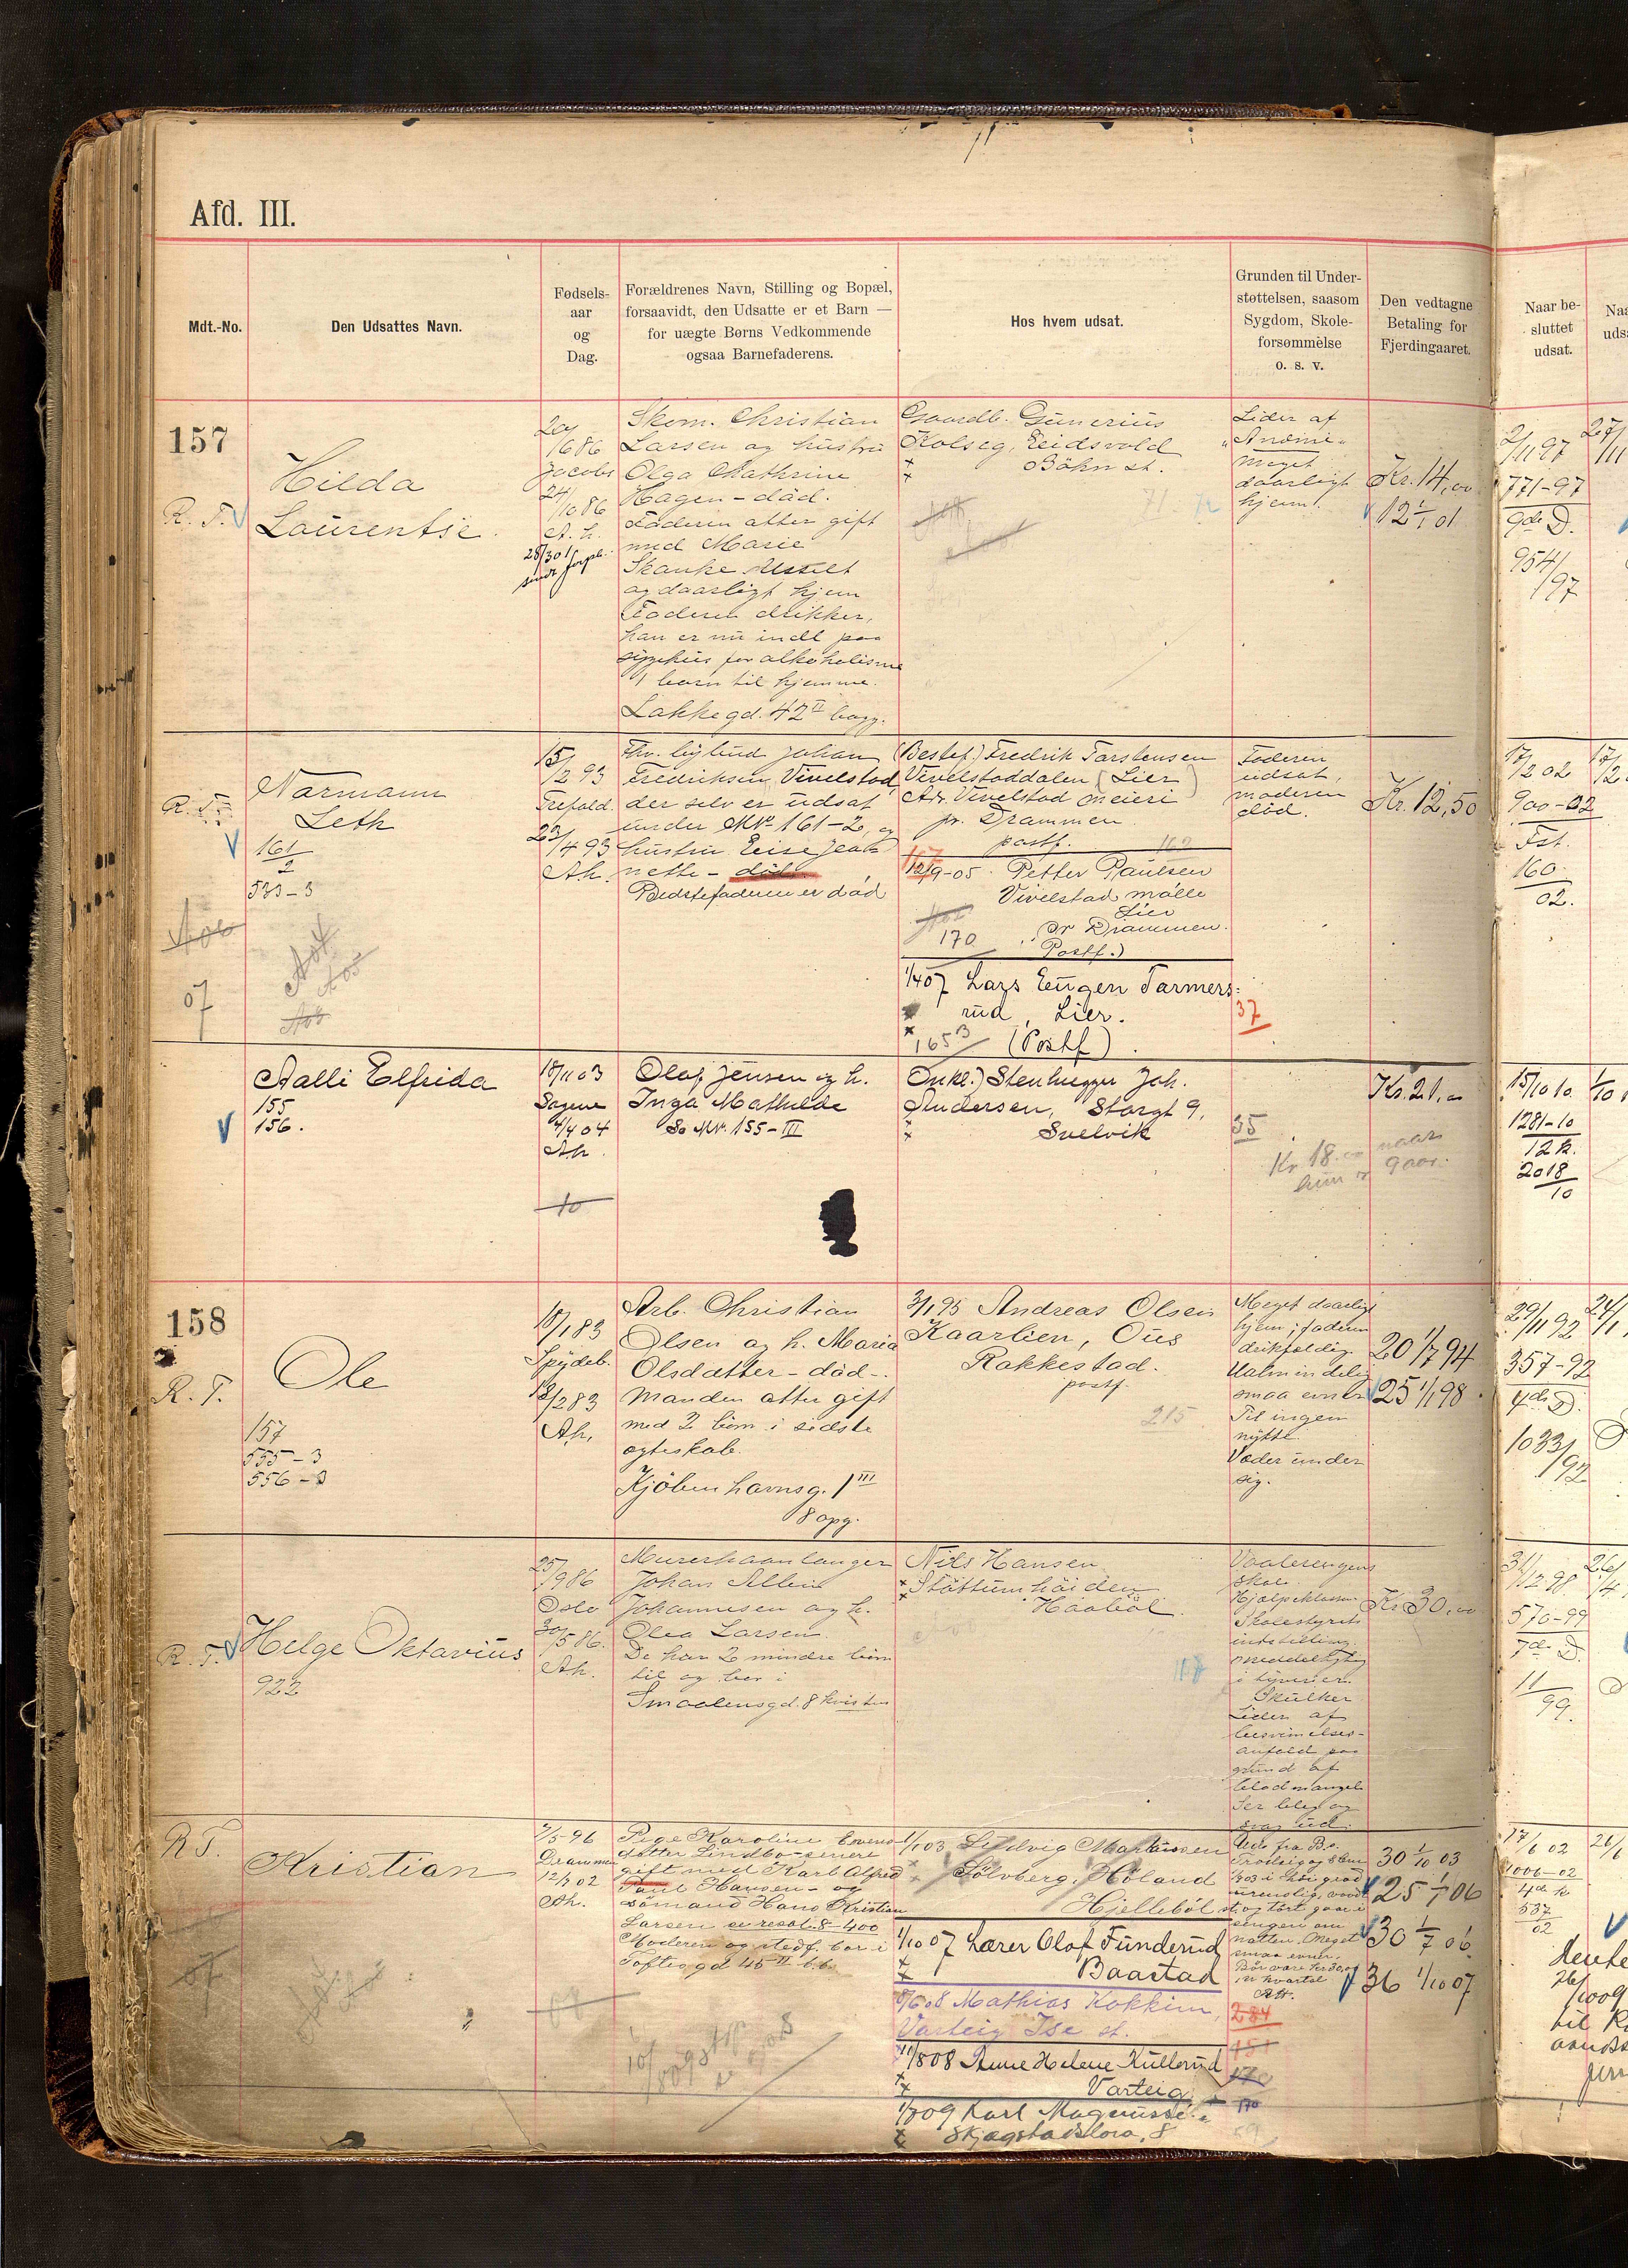 Afd. III.
Mdt.-No.
Den Udsattes Navn.
Fødsels-
aar
og
Dag.
Forældrenes Navn, Stilling og Bopæl,
forsaavidt, den Udsatte er et Barn —
for uægte Børns Vedkommende
ogsaa Barnefaderens.
Hos hvem udsat.
Grunden til Under-
støttelsen, saasom
Sygdom, Skole-
forsømmelse
o. s. v.
Den vedtagne
Betaling for
Fjerdingaaret.
Naar be-
sluttet
udsat.
157
R. T.
Hilda
Laurentse
20/686
Jacobs
24/1086
A. h.
28/301
Skom. Christian
Larsen og hustru
Olga Cathrine
Hagen - död.
Faderen atter gift
med Marie
Skanke
og daarligt hjem
Faderen drikker,
han er nu indl paa
sygehus for alkoholisme
1 barn til hjemme.
Lakkegd. 42 II bagg.
Gaardb. Gunerius
Kolseg, Eidsvold
Böhn st.
Lider af
"Anæmi"
meget
daarligt
hjem!
Kr. 14,00
12 1/1 01
2/11 97
771-97
9de D.
954/97
R. T.
Narmann
Leth
161/2
533-3
07
15/2 93
Trefold.
23/4 93
Ah.
Fhv. bybud Johan
Fredriksen Vivelstad,
der selv er udsat
under MNo 161-2, og
hustru Elise Jean
nette - död.
Bedstefaderen er död
(Bestef.) Fredrik Torstensen
Vivelstaddalen (Lier)
Adr. Vivelstad meieri
pr. Drammen
postf.
167
12/9-05. Petter Paulsen
Vivelstad mölle
Lier
pr Drammen.
Postf.)
170
1/4 07 Lars Eugen Tarmers-
rud, Lier.
165 B (Postf).
37
Faderen
udsat,
moderen
död.
Kr. 12,50
17/2 02
900-02
Fst.
160
02.
Aalli Elfrida
155
156.
18/11 03
Sagene
4/4 04
Ah.
10
Olaf Jensen og h.
Inga Mathilde
Se MNr. 155-III
Onkl.) Stenhugger Joh.
Andersen, Storgt 9,
Svelvik
35
Kr. 18.00 naar
hun er 9 aar.
Kr. 21,00
15/10 10.
1281-10
12 k.
2018
10
158
R. T.
Ole
157
555-3
556-3
18/1 83
Spydeb.
18/2 83
Ah.
Arb. Christian
Olsen og h. Maria
Olsdatter - död -.
Manden atter gift
med 2 börn i sidste
egteskab.
Kjöbenhavnsg. 1 III
8 opg.
3/1 95 Andreas Olsen
Kaarlien, Ous
Rakkestad.
postf.
215.
Meget daarlig
hjem; faderen
drikfældig.
Ualmindelig
smaa evner
Til ingen
nytte.
Væder under
sig.
20 1/7 94
25 1/1 98.
29/11 92
357-92
4de D.
1033/92
R. T.
Helge Oktavius
922
25/9 86
Oslo
30/5 86.
Ah.
Murerhaandlanger
Johan Allin
Johannesen og h.
Olea Larsen.
De har 2 mindre börn
til og bor i
Smaalensgd. 8 kvisten
Nils Hansen
Stöttumhöiden
Haaböl.
118
Vaalerengens
skole.
Hjælpeklassen
Skolestyrets
indstilling.
meddelagtig
i tyverier.
Skulker
Lider af
besvimelses-
anfald paa
grund af
blodmangel
Ser bleg og
svag ud.
Kr. 30,00
31/12 98
570-99
7de D.
11/99.
R. T.
Kristian
2/5-96
Drammen
12/7 02
Ah.
Pige Karoline Everts-
datter Lindbo - senere
gift med Karl Alfred
Paul Hansen - og
sömand Hans Kristian
Larsen se resol. 8-400
Moderen og stedf. bor i
Toftes gd 45 II
1/1 03 Ludvig Martinsen
Sölvberg, Höland
Hjelleböl st.
1/10 07 Lærer Olaf Funderud
Baastad
8/6 08 Mathias Kokkim,
Varteig Ise st.
11/8 08 Anne Helene Kullerud
Varteig
Karl Magnussen
284
170
30 1/10 03
25 1/1 06
30 1/7 06
36 1/10 07
17/6 02
1006-02
4de k
537
02